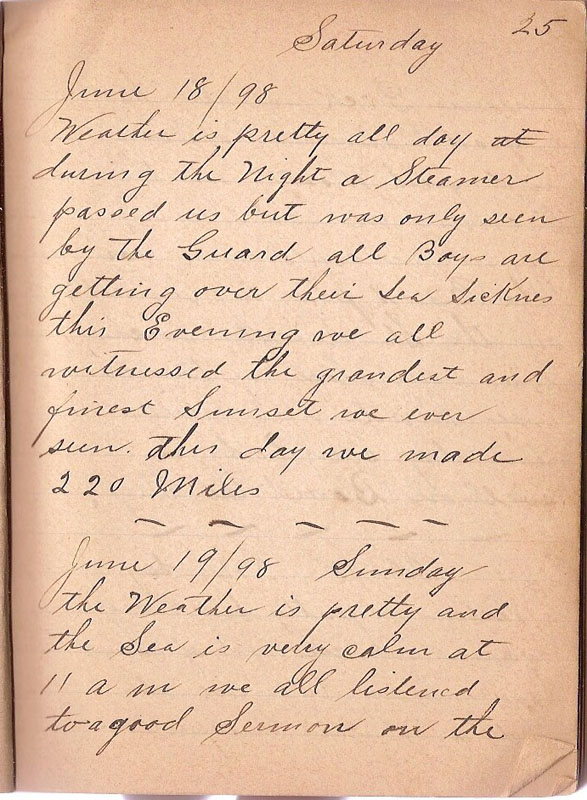 25
Saturday
June 18/98
Weather is pretty all day at
during the Night a Steamer
passed us but was only seen
by the Guard all Boys are
getting over their Sea Sicknes
this Evening we all
witnessed the grandest and
finest Sunset we ever
seen. this day we made
220 Miles
June 19/98 Sunday
the Weather is pretty and
the Sea is very calm at
11 a m we all listened
to a good Sermon on the